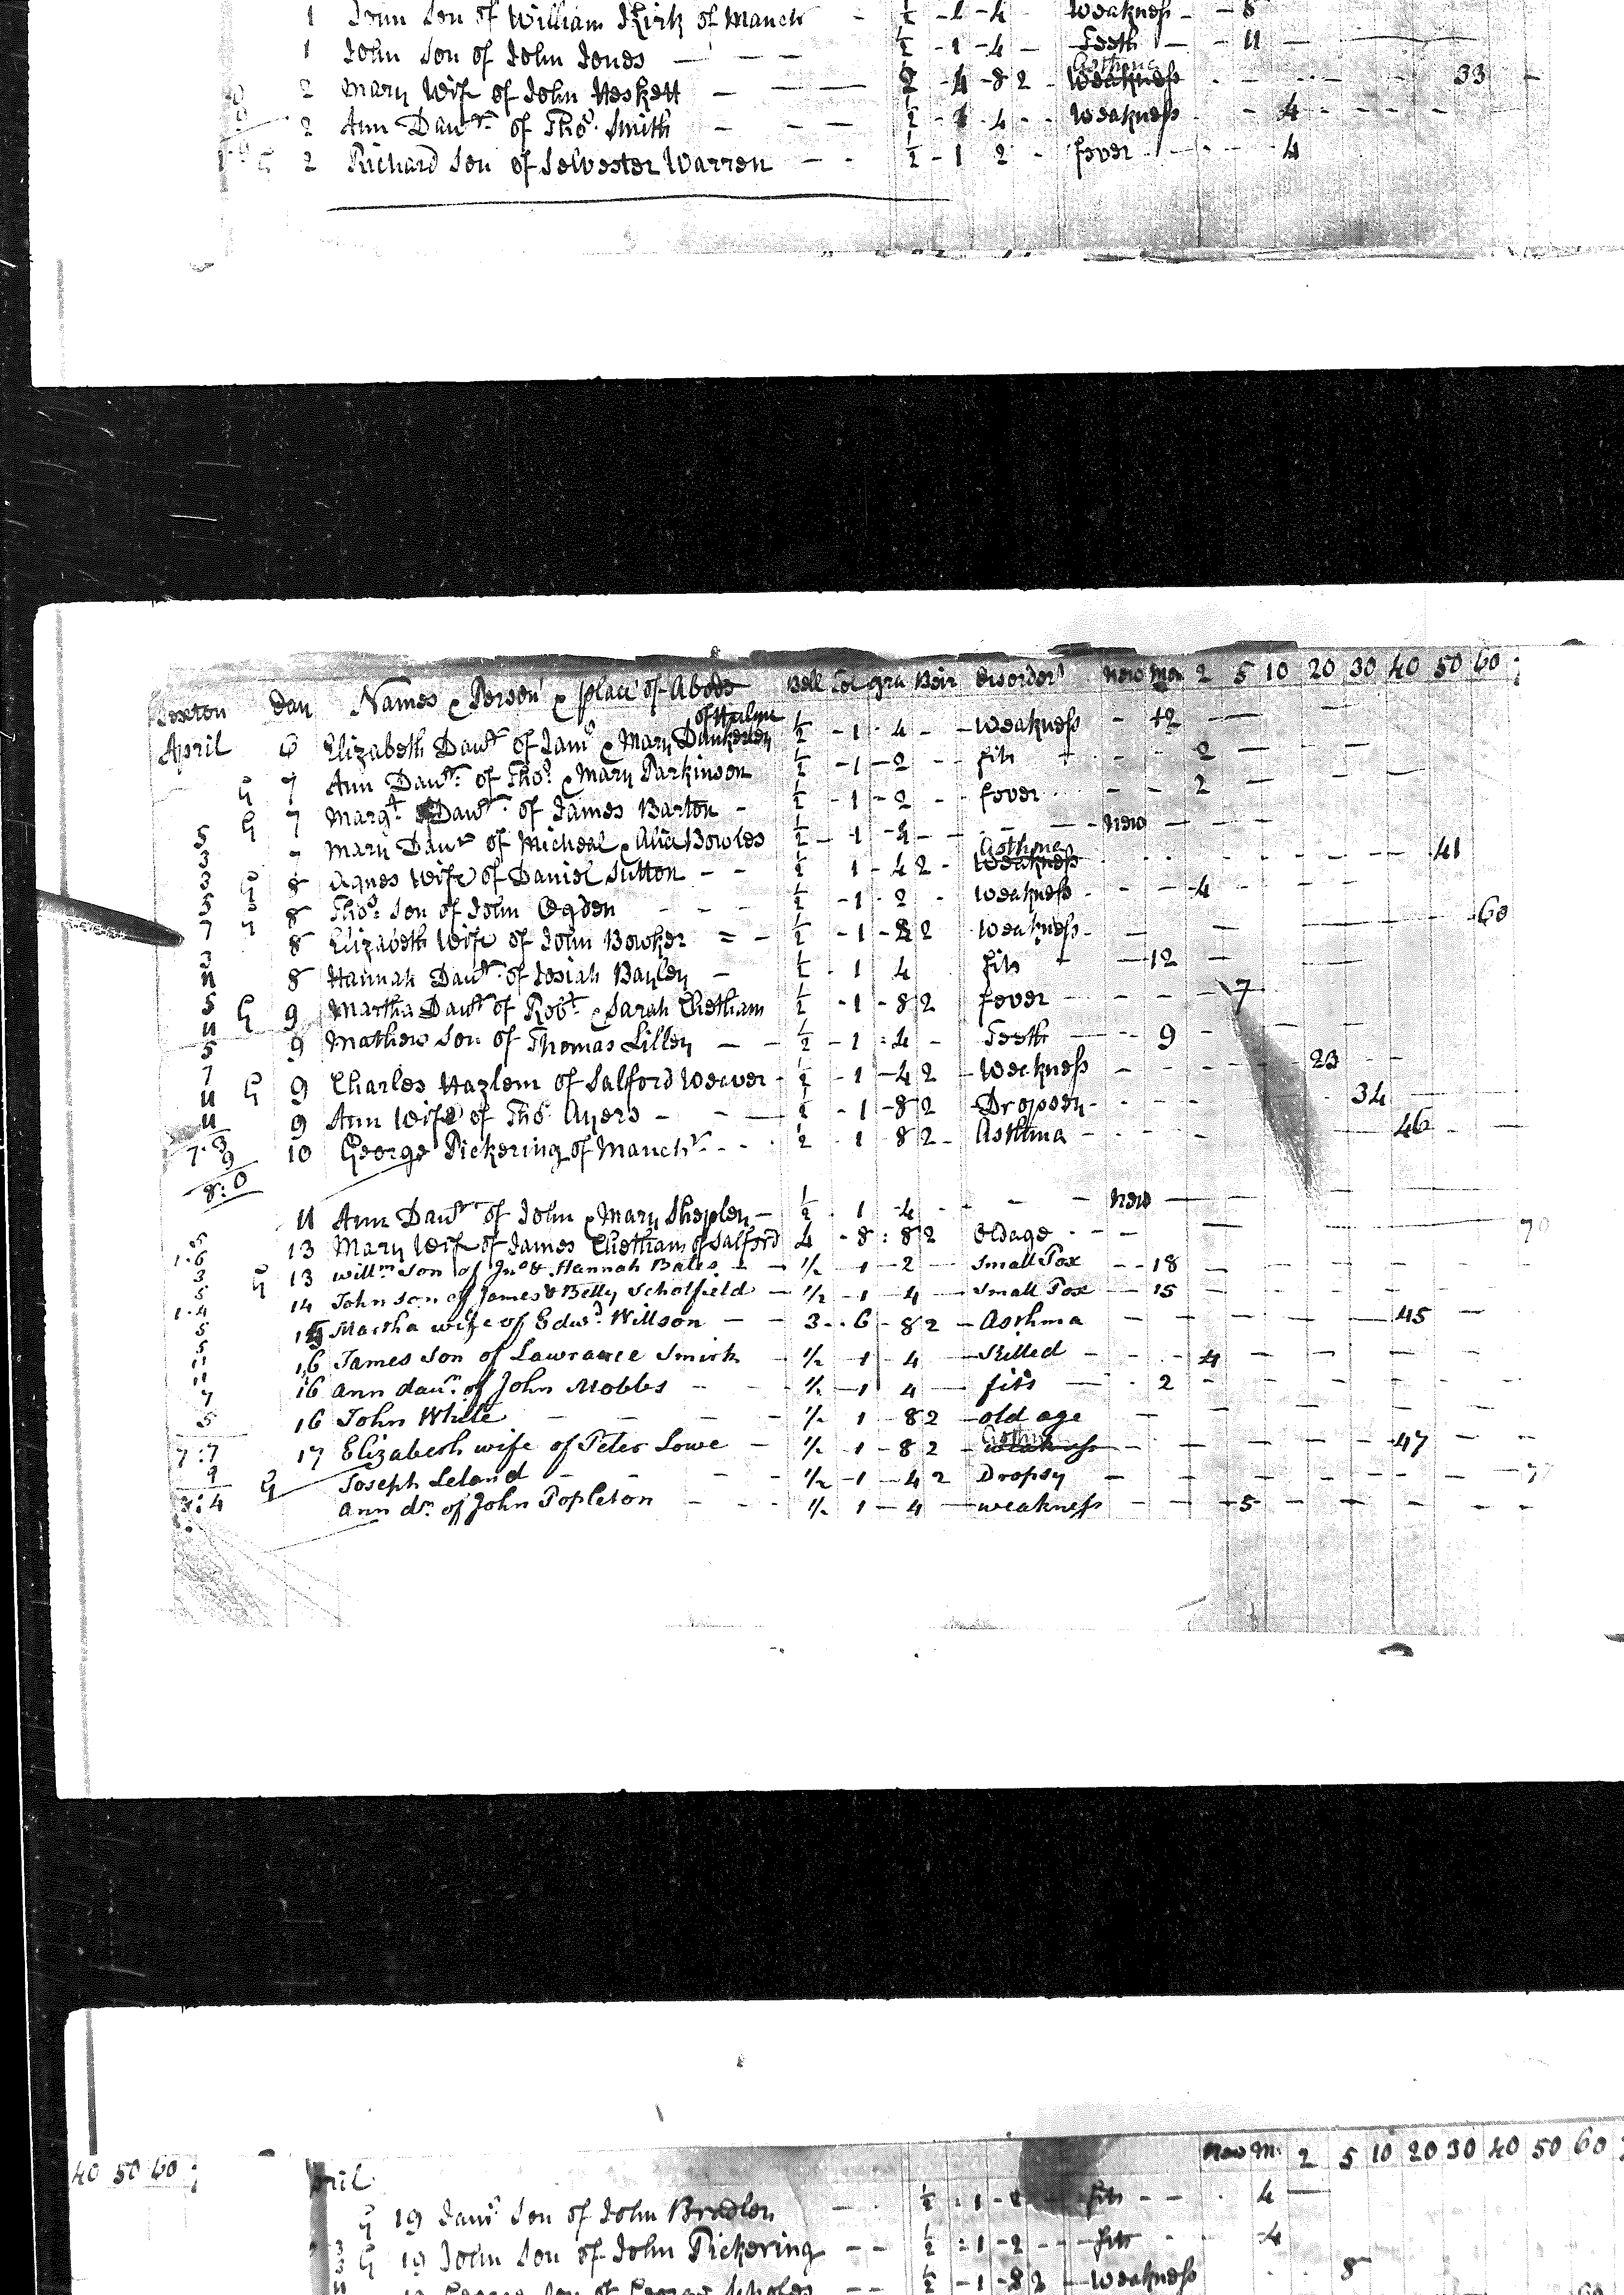 1 John Son of William Kirk of Manchr ½ - 1 - 4 - Weakness - - 8
1 John Son of John Jones ½ - 1 - 4 - Teeth - - 11
2 Mary Wife of John Heskett - 4 - 8 2 Asthma Weakness 33
2 Ann Dawtr. of Thos. Smith ½ 4 - Weakness - - 4
2 Richard Son of Selvester Warren ½ - 1 2 - fever 4
Sexton Day Names & Person & place of Abode Bell Gra Beir disorder new Mo 2 5 10 20 30 40 50 60
April 6 Elizabeth Dawtr of Jams & Mary Dunkerley of Hulme ½ - 1 - 4 - Weakness - 12
G 7 Ann Dawtr. of Thos. & Mary Parkinson ½ - 1 - 2 - fits 2
5 G 7 Margt Dawtr. of James Barton ½ - 1 - 2 - fever 2
3 Mary Dawtr of Micheal & Alice Bowles ½ - 1 - 4 - new
3 G 8 Agnes Wife of Daniel Sutton ½ 1 - 4 2 - Asthma Weakness 41
5 8 Thos. Son of John Ogden ½ - 1 - 2 - Weakness 4
7 8 Elizabeth Wife of John Bowker ½ - 1 - 8 2 Weakness 60
3 8 Hannah Dawtr. of Josiah Bayley ½ 1 4 fits 12
11
5 G 9 Martha Dawtr of Robt. & Sarah Chetham ½ - 1 - 8 2 fever 7
11 9 Mathew Son of Thomas Lilley ½ - 1 : 4 - Teeth 9
5
7
11 G 9 Charles Hazlem of Salford Weaver ½ - 1 - 4 2 - Weekness 23
11 9 Ann Wife of Thos. Ayers ½ - 1 - 8 2 - Dropsey 34
7.3 10 George Pickering of Manchr. ½ 1 8 2 - Asthma 46
9
8:0
11 Ann Dawtr of John & Mary Shepley ½ 1 4 - new
5 13 Mary Wife of James Chetham of Salford 4 - 8 : 8 2 Oldage 70
1.6
3 G 13 Willm Son of Jno & Hannah Bates ½ 1 - 2 Small Pox 18
5 14 John son of James & Betty Scholfield ½ - 1 - 4 Small Pox 15
1.4
5 15 Martha wife of Edwd. Willson 3 .. 6 - 8 2 - Asthma 45
5 16 James Son of Lawrance Smith ½ - 1 - 4 Killed 4
11 16 Ann daur. of John Mobbs ½ - 1 4 fits 2
11
7 16 John White ½ 1 - 8 2 - old age
5
7:7 17 Elizabeth wife of Peter Lowe ½ 1 - 8 2 - Asthma weakness 47
9 G Joseph Leland ½ - 1 - 4 2 Dropsy
Ann dr. of John Popleton ½ 1 - 4 weakness 5
40 50 60 new M. 2 5 10 20 30 40 50 60
19 Jams Son of John Bradley ½ : 1 - fits - - 4
3 G 19 John Son of John Pickering ½ : 1 - 2 - fits 4
½ - 1 - 8 2 - Weakness 8